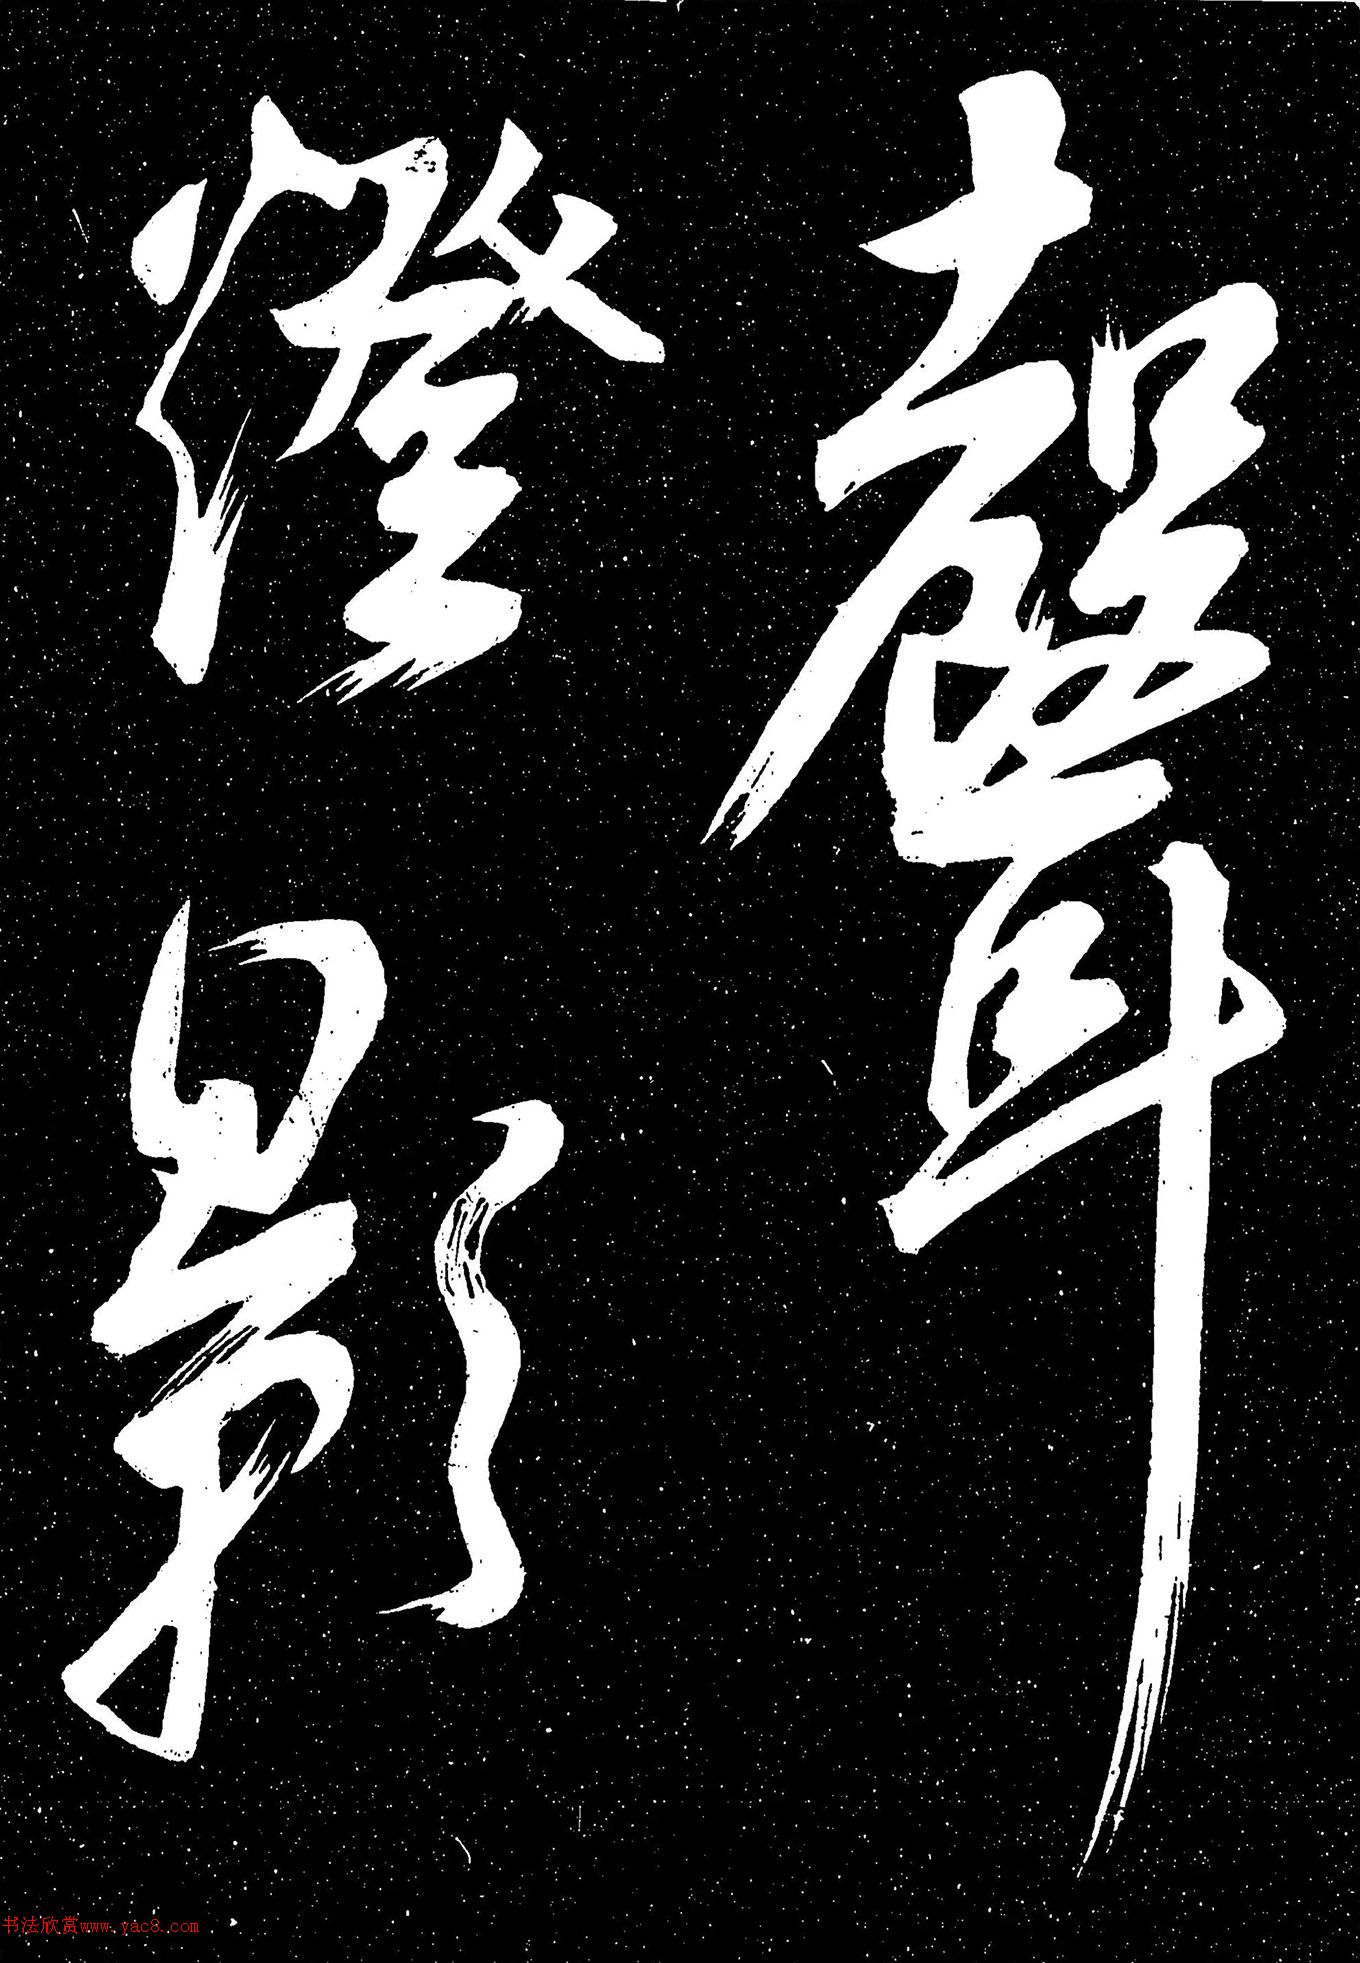 聲
燈影
书法欣赏www.yac8.com